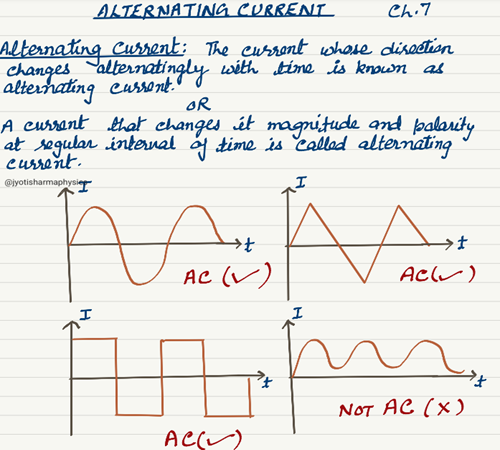 ALTERNATING CURRENT Ch.7
Alternating Current: The current whose direction
changes alternatingly with time is known as
alternating current.
OR
A current that changes it magnitude and polarity
at regular interval of time is called alternating
current.
@jyotisharmaphysics
I
t
AC (✓)
I
t
AC (✓)
I
t
AC (✓)
I
t
NOT AC (X)